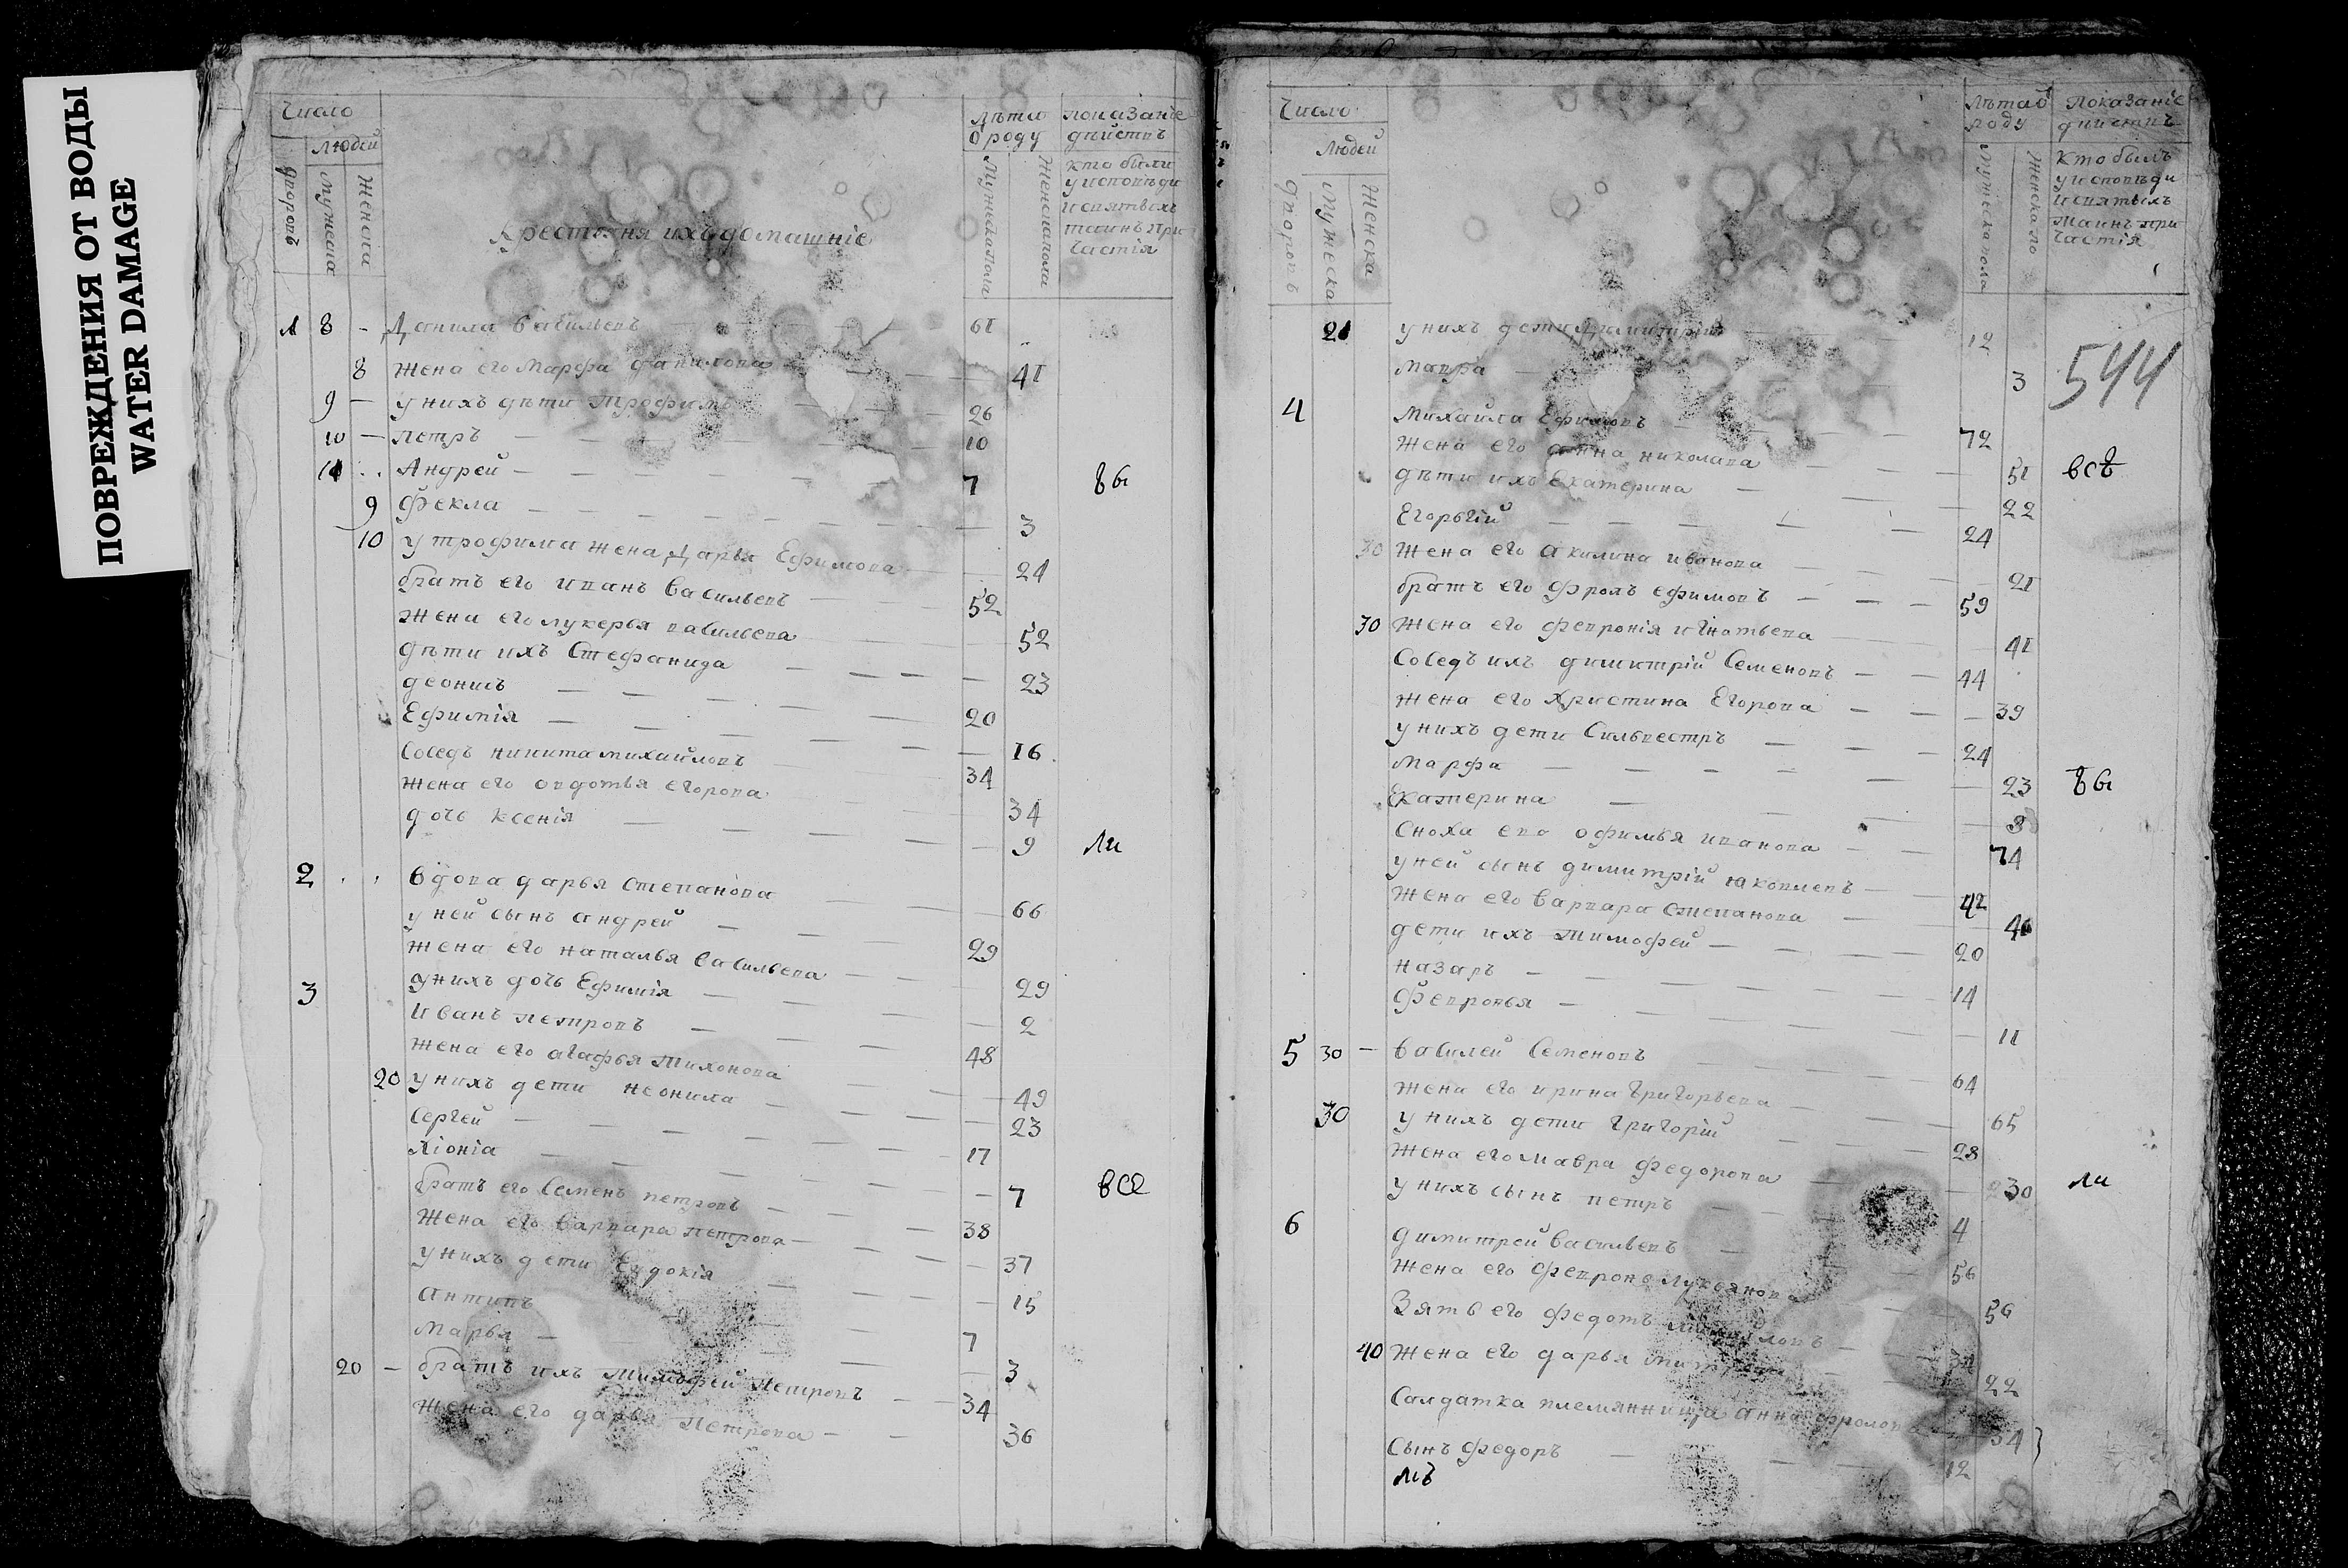 ПОВРЕЖДЕНИЯ ОТ ВОДЫ
WATER DAMAGE
Число
Людей
дворовъ
мужеска
женска
Крестьяня ихъ домашніе
лѣта
о роду
Мужеска пола
Женска пола
показаніе
дѣйствъ
кто были
у исповѣди
и святыхъ
таинъ при
частія
1 8 - Данила Васильевъ 61
8 жена его Марфа данилова 41
9 - у нихъ дѣти Трофимъ 26
10 - петръ 10
11 Андрей 7 Ѣы
9 Фекла 3
10 у трофима жена Дарья Ефимова 24
братъ его иванъ Васильевъ 52
жена его лукерья васильева 52
дѣти ихъ Стефанида 23
деонисъ 20
Ефимія 16
Соседъ никита михайловъ 34
жена его овдотья егорова 34
дочь ксенія 9 Ли
2 Вдова дарья степанова 66
у ней сынъ андрей 29
жена его наталья Васильева 29
3 у нихъ дочь Ефимія 2
Иванъ петровъ 48
жена его агафья тихонова 49
20 у нихъ дети неонила 23
Сергей 17
хіоніа 7 все
братъ его Семенъ петровъ 38
жена его варвара петрова 37
у нихъ дети Евдокія 15
антипъ 7
марья 3
20 - братъ ихъ тимофей петровъ 34
жена его дарья петрова 36
Число
Людей
дворовъ
Мужеска
Женска
лѣта о
роду
мужеска пола
женска по
показаніе
дѣиствъ
кто былъ
у исповѣди
и святыхъ
таинъ при
частія
21 у нихъ дети Димитрій 12
мавра 3
544
4 Михаила Ефимовъ 72
жена его анна николава 51 всѣ
дѣти ихъ Екатерина 22
Егоргій 24
30 жена его акилина иванова 21
братъ его фролъ ефимовъ 59
30 жена его февронія игнатьева 41
Соседъ ихъ димитрій Семеновъ 44
жена его христина Егорова 39
у нихъ дети Сильвестръ 24
Марфа 23 Ѣы
Екатерина 8
сноха ево офимья иванова 74
у ней сынъ димитрій яковлевъ 42
жена его варвара степанова 40
дети ихъ тимофей 20
назаръ 14
Февронья 11
5 30 - Василей Семеновъ 64
жена его ирина григорьева 65
30 у нихъ дети григорій 28
жена его мавра федорова 30 ли
у нихъ сынъ петръ 4
6 димитрей васильевъ 56
жена его февронь Лукьянова 56
Зять его федотъ
40 жена его дарья 22
Салдатка племянница анна фролова 34
сынъ федоръ 12